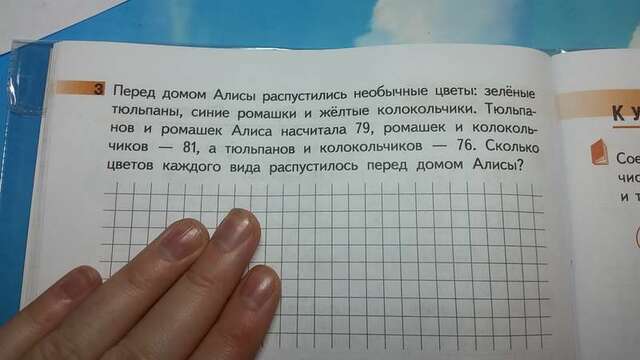 3 Перед домом Алисы распустились необычные цветы: зелёные
тюльпаны, синие ромашки и жёлтые колокольчики. Тюльпа-
нов и ромашек Алиса насчитала 79, ромашек и колоколь-
чиков — 81, а тюльпанов и колокольчиков — 76. Сколько
цветов каждого вида распустилось перед домом Алисы?
К у
Сое
чис
и т